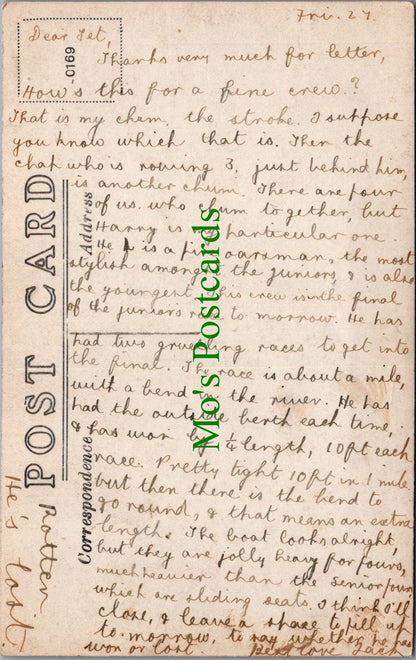 Fri. 27.
Dear Tet,
Thanks very much for letter,
How's this for a fine crew?
That is my chum, the stroke. I suppose
you know which that is. Then the
chap who is rowing 3, just behind him,
is another chum. There are four
of us who chum together, but
Harry is particular one.
He is a fine oarsman, the most
stylish among the juniors, & is also
the youngest. This crew is in the final
of the juniors race to morrow. He has
had two gruelling races to get into
the final. The race is about a mile,
with a bend in the river. He has
had the outside berth each time
& has won by ¼ length, 10ft each
race. Pretty tight 10ft in 1 mile
but then there is the bend to
go round, & that means an extra
length. The boat looks alright,
but they are jolly heavy for fours,
much heavier than the senior fours
which are sliding seats. I think I'll
close, & leave a space to fill up
to-morrow, to say whether he has
won or lost. Best love Jack
He's lost
Rotten.
POST CARD
Address
Correspondence
-0169
Mo's Postcards